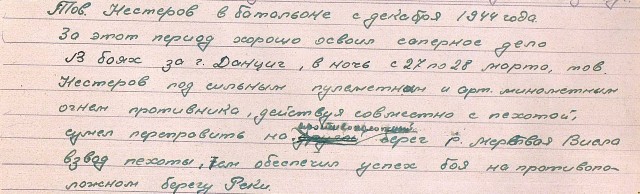 Тов. Нестеров в батальоне с декабря 1944 года.
За этот период хорошо освоил саперное дело
В боях за г. Данциг, в ночь с 27 по 28 марта, тов.
Нестеров под сильным пулеметным и арт. минометным
огнем противника, действуя совместно с пехотой,
сумел переправить на противоположный берег р. мертвая Висла
взвод пехоты, тем обеспечил успех боя на противопо-
ложном берегу Реки.